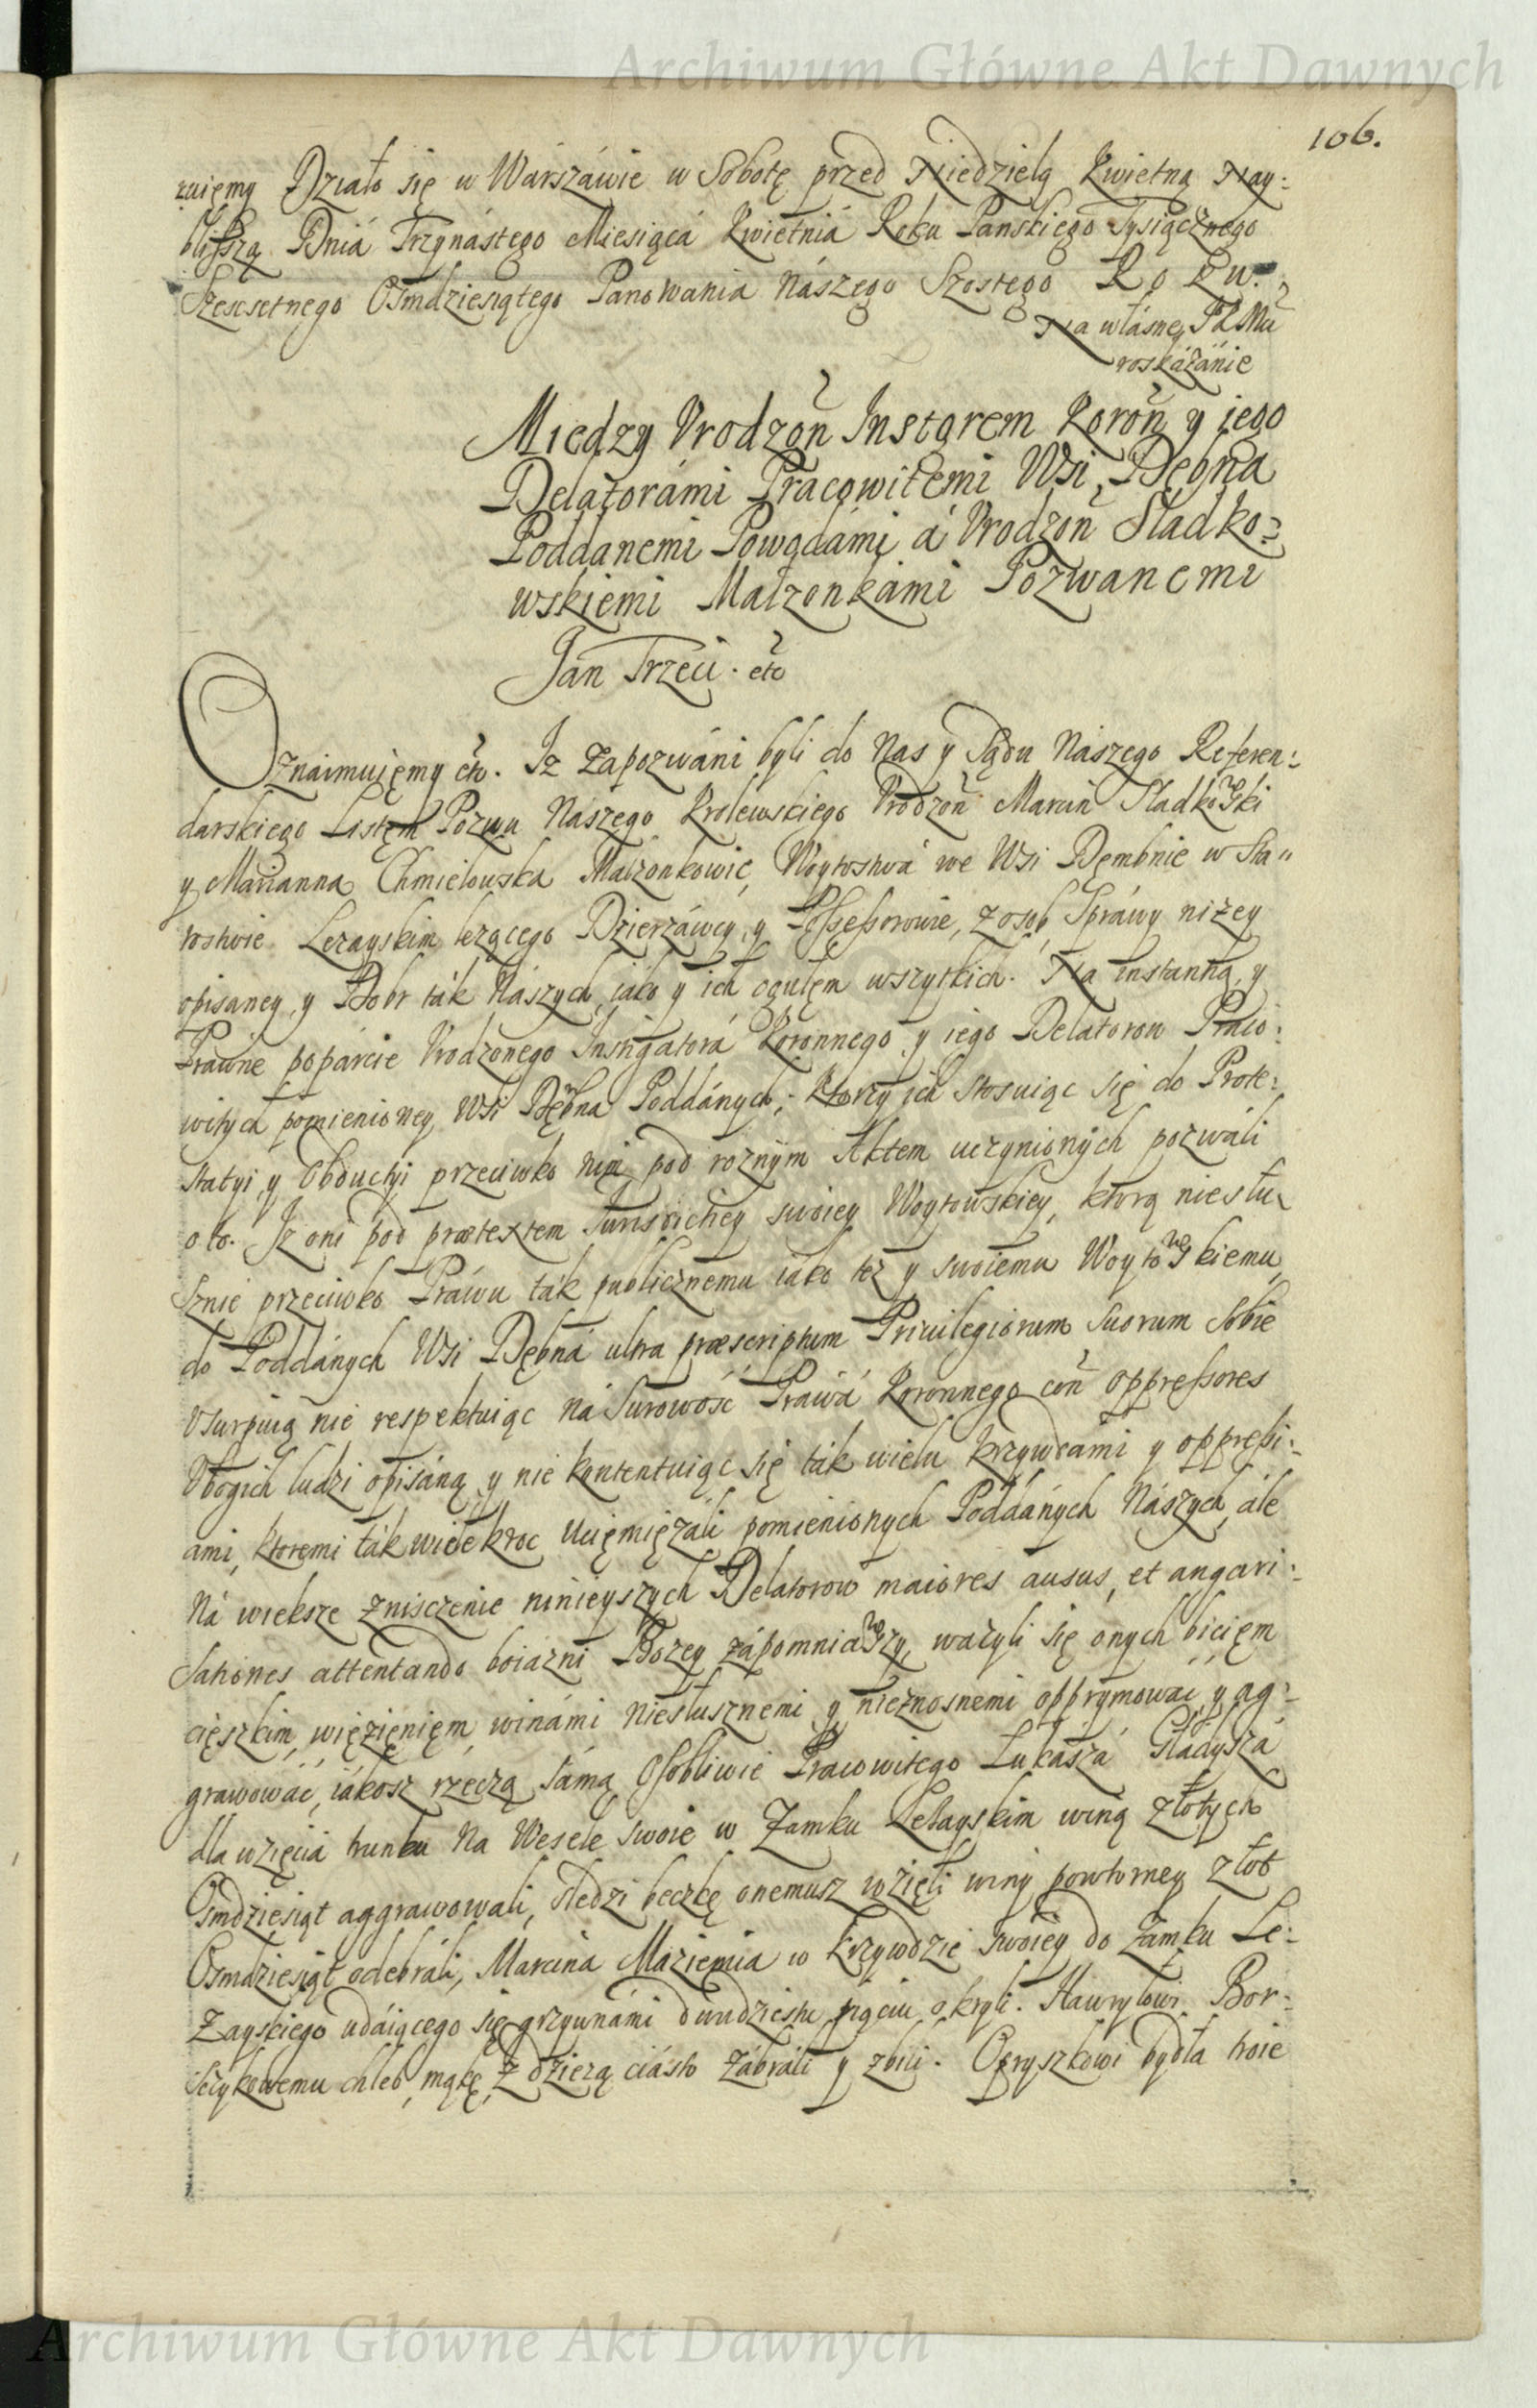 Archiwum Główne Akt Dawnych
106.
zuięmy Działo się w Warszáwie w Sobotę przed Niedzielą Kwietną Nay:
bliſszą Dniá Trzynástego Miesiącá Kwietniá Roku Panskiego Tysiącznego
Szescsetnego Osmdziesiątego Panowania Nászego Szostego
Na włásne
roskázánie
Między Vrodzoñ Instgrem Koroñ y iego
Delatorámi Pracowitemi Wsi Dębna
Poddanemi Powodámi á Vrodzoñ Sladko:
wskiemi Małzonkámi Pozwanemi
Jan Trzeci. etc
Oznaimuięmy etc. Iz Zapozwáni byli do Nas y Sądu Naszego Referen:
darskiego Listem Pozwu Naszego Krolewskiego Vrodzoñ Marcin Sladkowski
y Marianna Chmielowska Małzonkowie, Woytostwá we Wsi Dembnie w Sta"
rostwie Lezayskim lezącego Dzierzáwcy, y Possessorowie, z osob, Spráwy nizey
opisaney, y Dobr ták Nászych, iáko y ich ogułęm wszytkich. Na instantią, y
Prawne popárcie Vrodzonego Instigatorá Koronnego y iego Delatorow Praco:
witych pomienioney Wsi Dębna Poddánych; ktorzy ich stosuiąc się do Prote:
statyi, y Obductyi przeciwko nim pod roznym Aktem uczynionych pozwáli
o to. Iz oni pod prætextem Iurisdictiey swoiey Woytowskiey, ktorą niesłu
sznie przeciwko Práwu ták publicznemu iáko tez y swoiemu Woytowskiemu,
do Poddánych Wsi Dębná ultra præscriptum Privilegiorum suorum sobie
Vsurpuią nie respektuiąc ná surowość Práwá Koronnego coñ oppreſsores
Vbogich ludzi opisáną y nie kontentuiąc się ták wielu krzywdami y oppreſsi:
ami, ktoremi ták wielekroc ucięmięzáli pomienionych Poddánych Nászych, ále
Ná większe zniszczenie ninieyszych Delatorow maiores ausus, et angari:
sationes attentando boiázni Bozey zápomniawszy, wazyli się onych bicięm
cięszkim, więzięnięm, winámi niesłusznemi y nieznosnemi opprymowáć, y ag:
grawowáć, iákosz rzeczą sámą Osobliwie Pracowitego Łukaszá Głádyszá
dla wzięciá trunku Na Wesele swoie w Zamku Lezayskim winą złotych
Osmdziesiąt aggrawowali, sledzi beczkę onemusz wzięli winy powtorney złot
Osmdziesiąt odebráli, Marcina w krzywdzie swoiey do Zamku Le:
Zayskiego udáiącego się grzywnámi dwudziestu piąciu okryli. Hawryłowi Bor:
sczykowemu chleb, mąkę, z dzierzą ciásto zábráli y zbili. Opryszkowi bydłá troie
Archiwum Główne Akt Dawnych